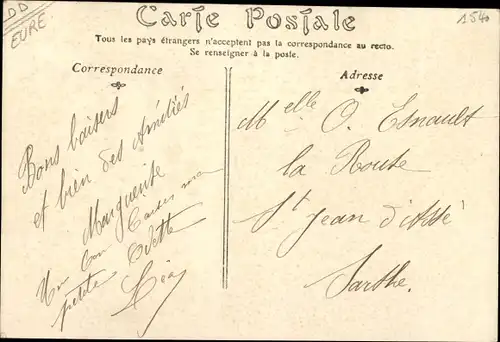 DD
EURE.
1540
Carte Postale
Tous les pays étrangers n'acceptent pas la correspondance au recto.
Se renseigner à la poste.
Correspondance
Adresse
Bons baisers
et bien des Amitiés
Marguerite
Un bon
ma
petite Odette
Léa
Melle O. Esnault
la Route
St Jean d'Assé
Sarthe.